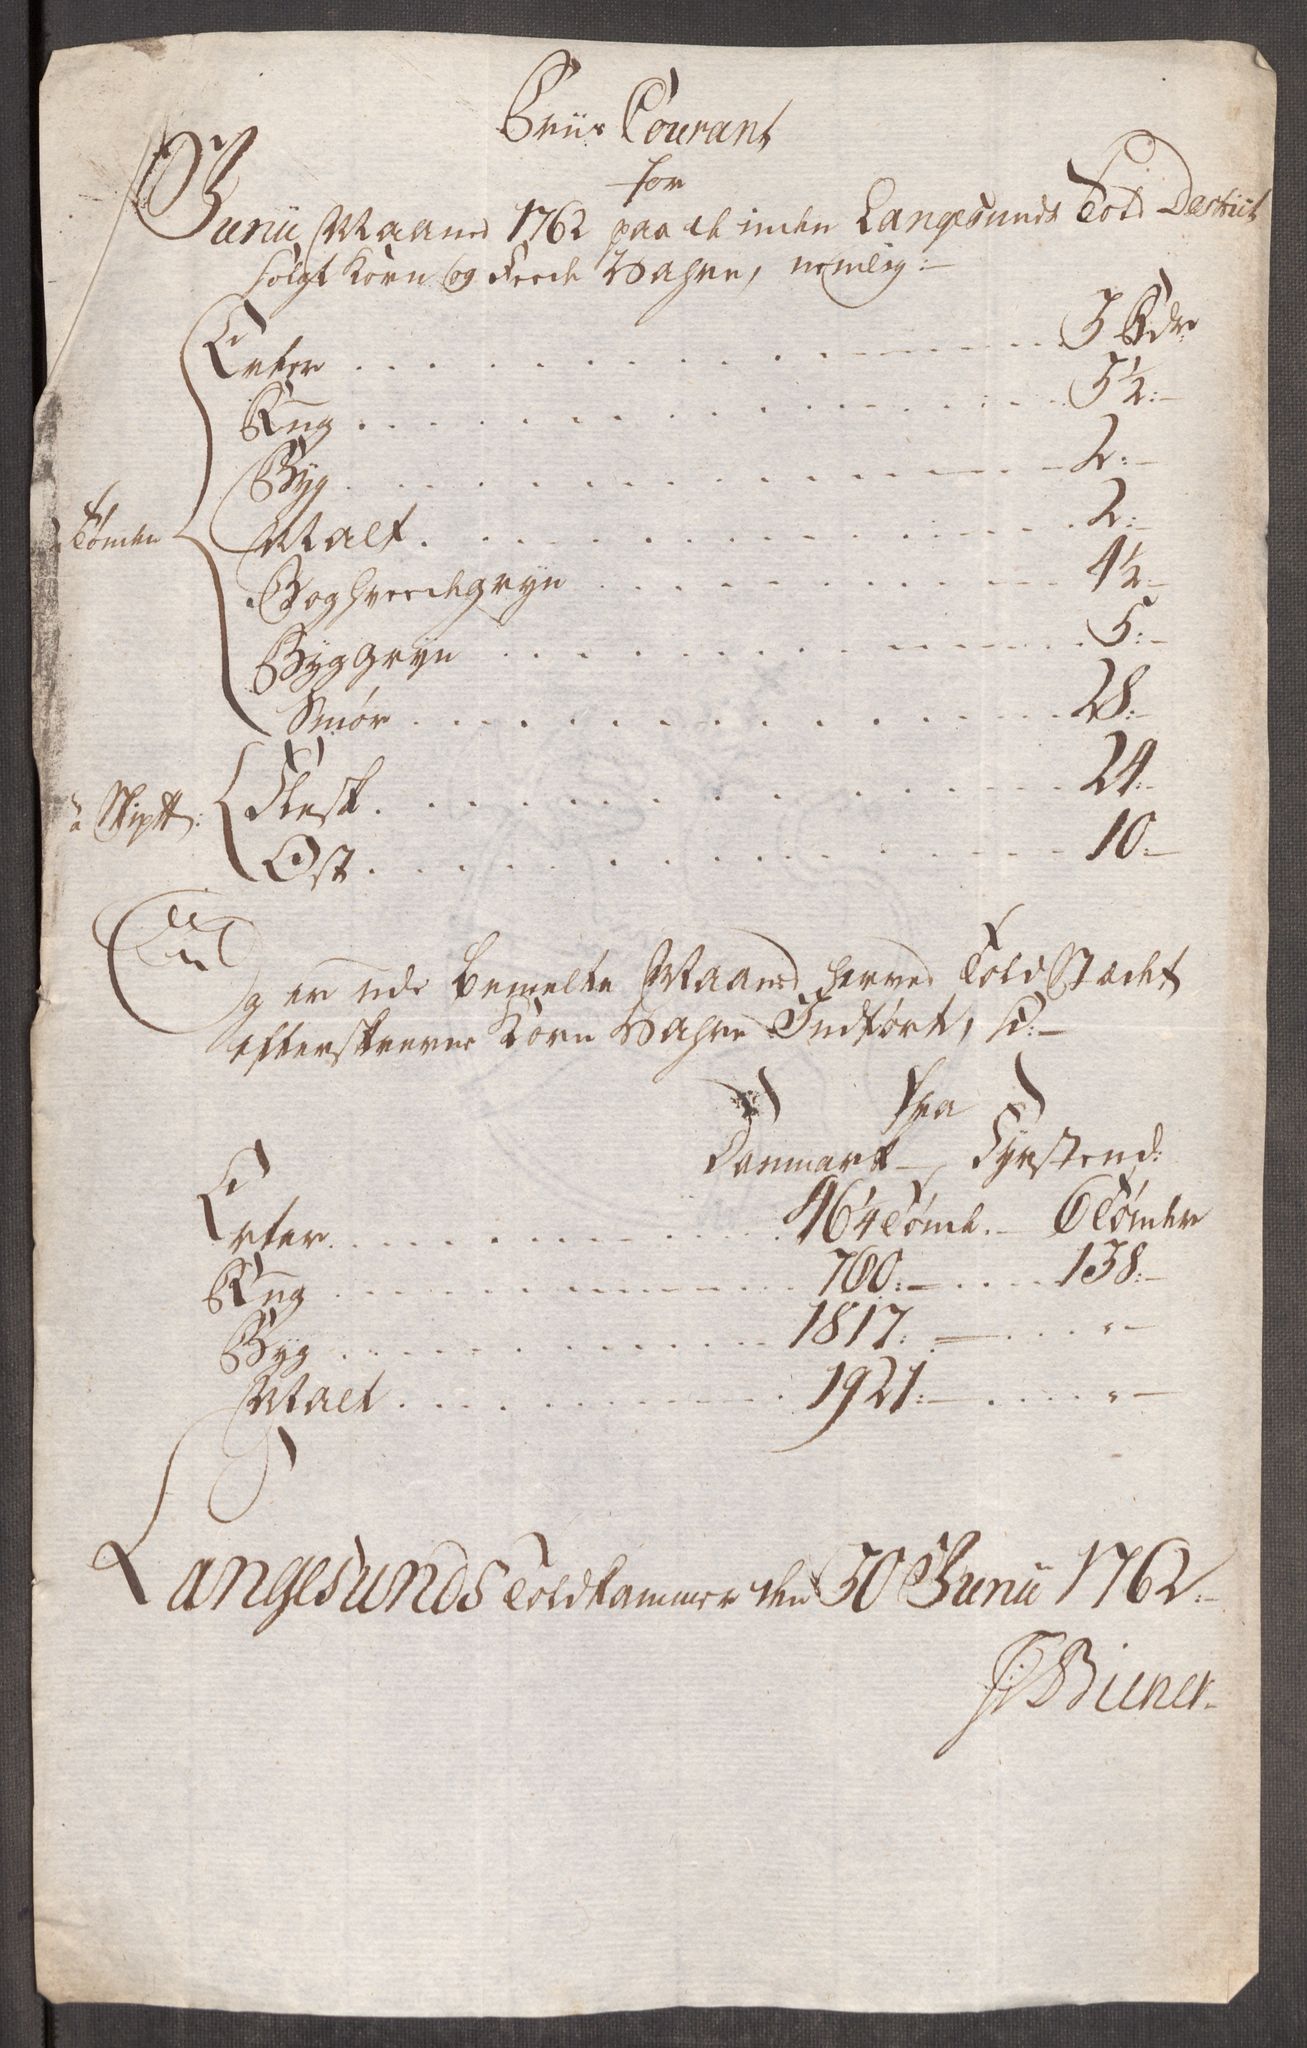 Priis Courant
for
Junii Maaned 1762 paa de inden Langesunds Told Destrict
solgt Korn og Feede Vahre, nemlig:
Erter 3 Rdr
Rug 3½:
Byg 2:
Tønden Malt 2:
Boghvedegryn 4½
Byggryn 5:
Smør 28:
a Skip℔: Flesk 24:
Ost 10
Og er udi bemelte Maaned herved ToldStædet
efterskrevne Korn Vahre Indført,
fra
Danmark Fyrstend:
Erter 46¼ Tønd. 6 Tønder
Rug 700: 138:
Byg 1817: "
Malt 1921: "
Langesunds Toldkammer den 30 Junii 1762
Biener